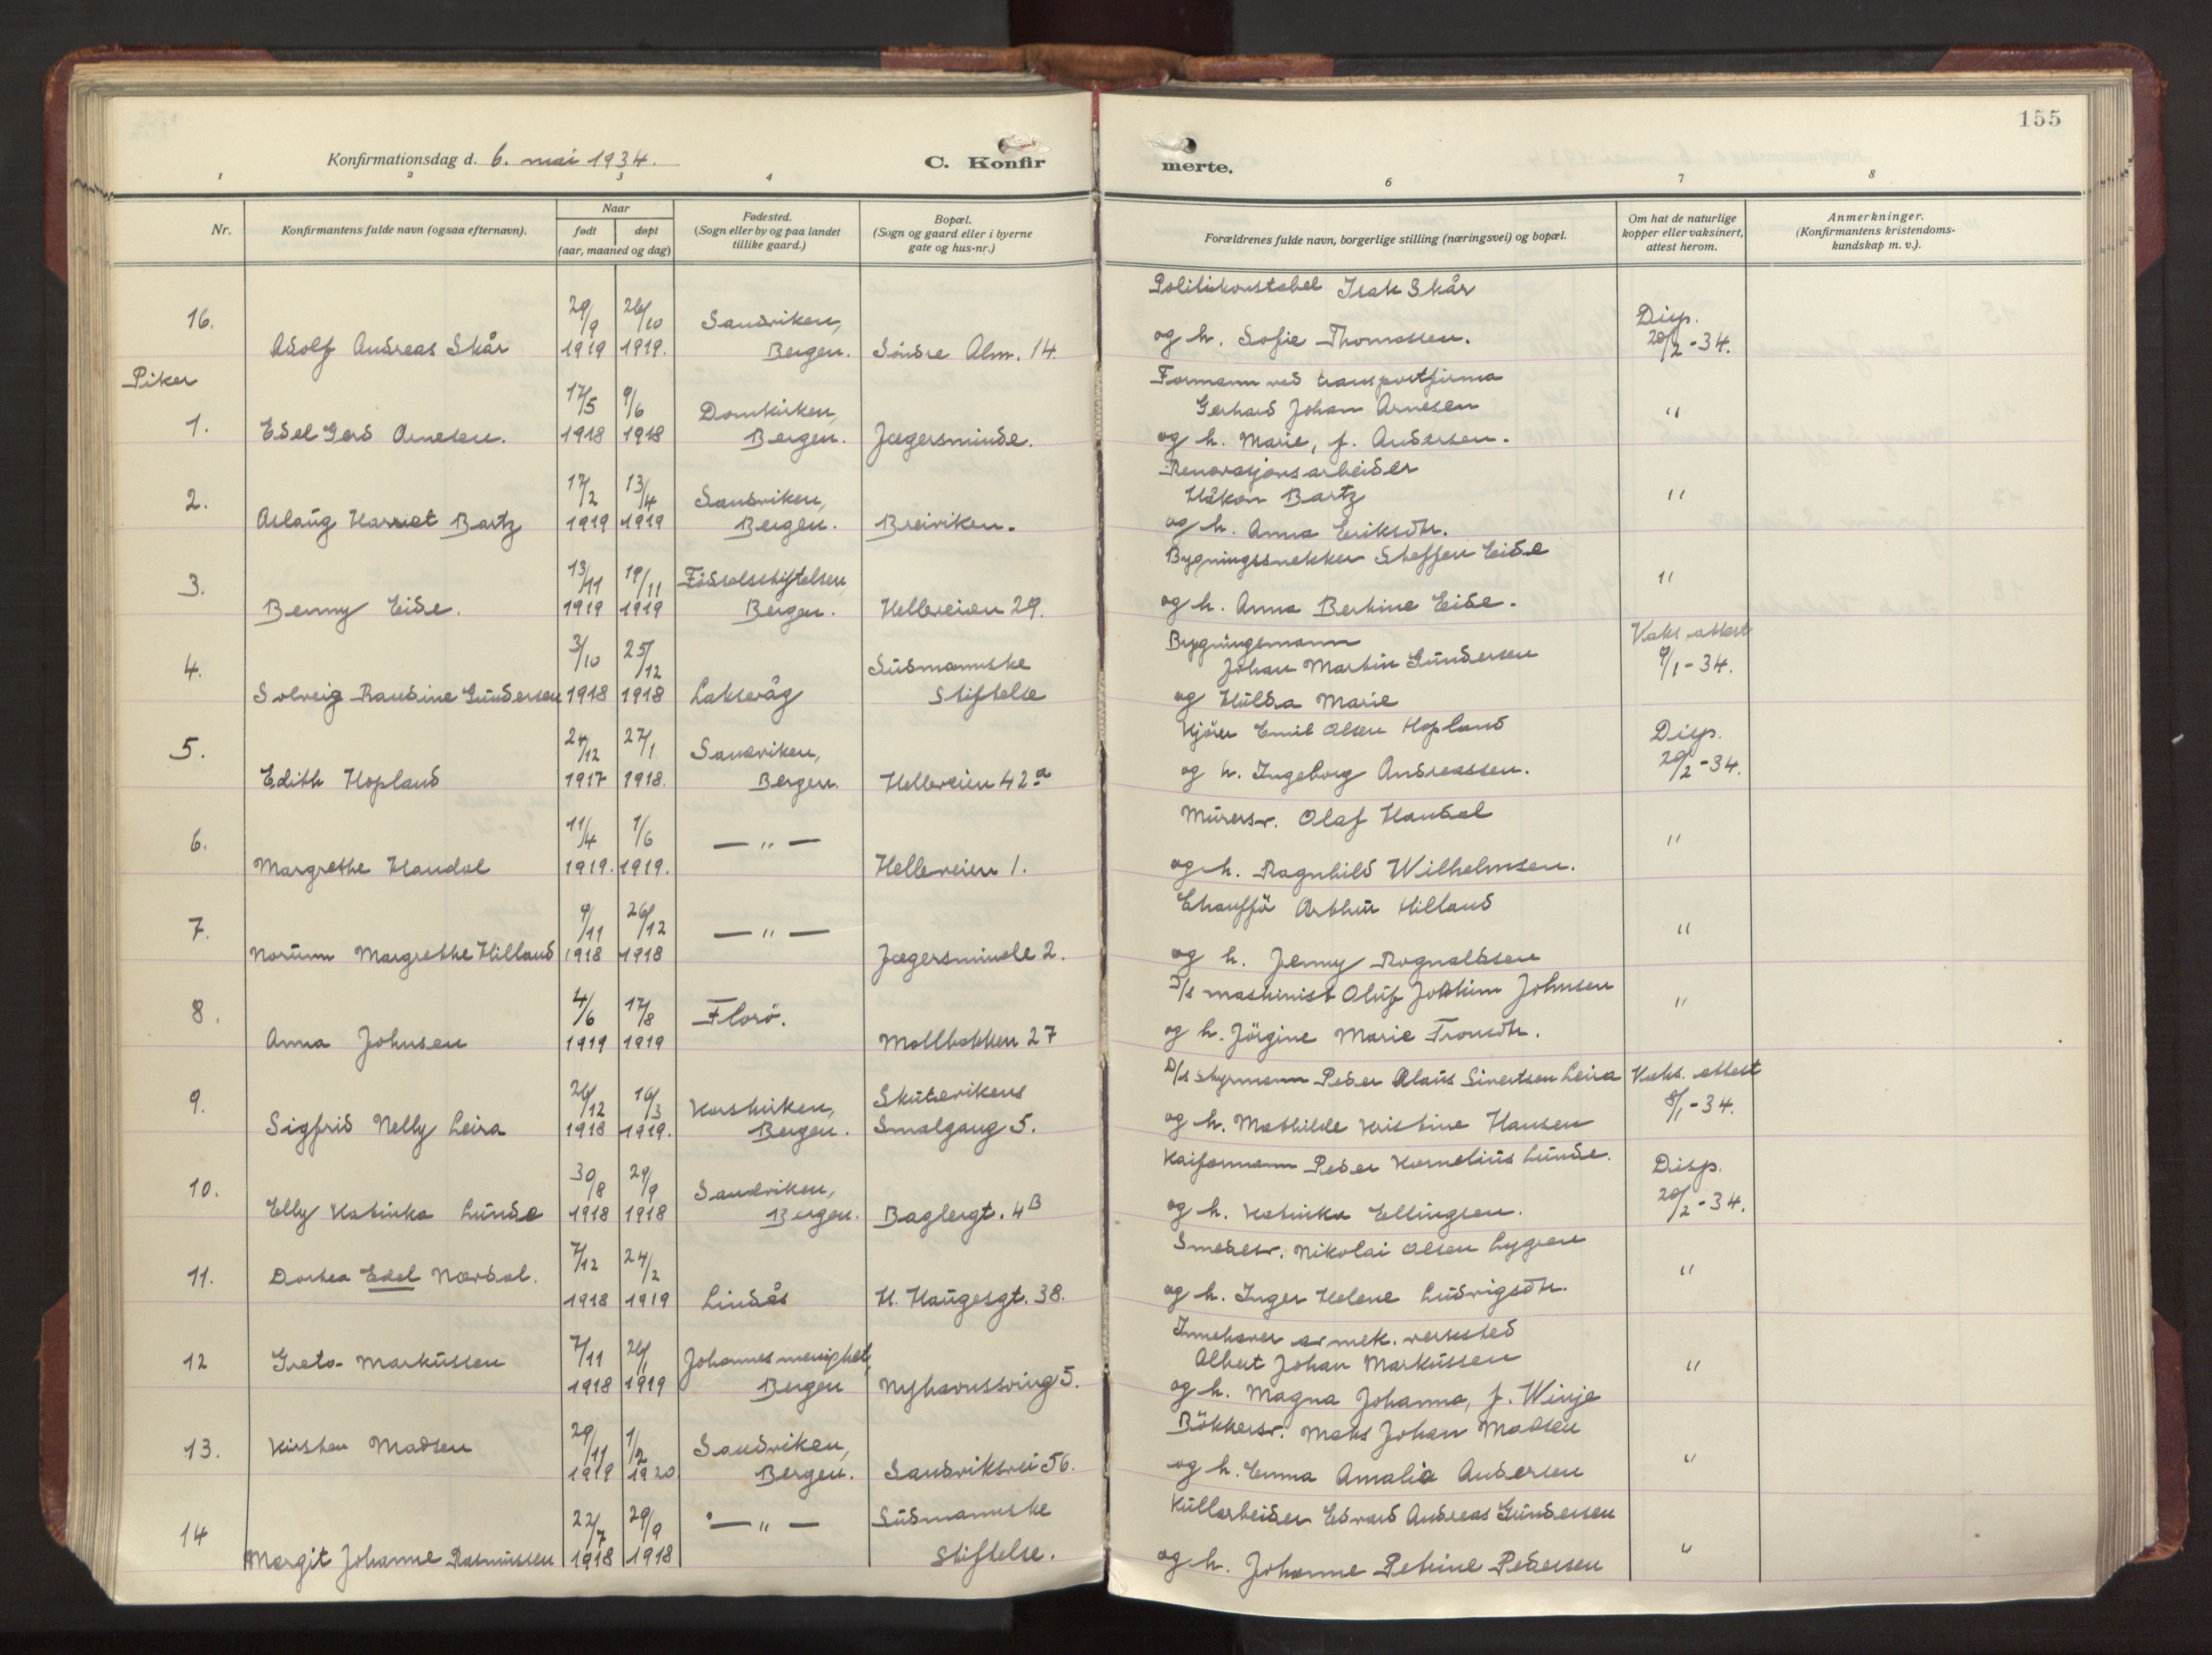 155
Konfirmationsdag d. 6. mai 1934. C. Konfirmerte.
1 2 3 4 6 7 8
Nr. Konfirmantens fulde navn (ogsaa efternavn). Naar født døpt (aar, maaned og dag) Fødested. (Sogn eller by og paa landet tillike gaard.) Bopæl. (Sogn og gaard eller i byerne gate og hus-nr.) Forældrenes fulde navn, borgerlige stilling (næringsvei) og bopæl. Om hat de naturlige kopper eller vaksinert, attest herom. Anmerkninger. (Konfirmantens kristendoms-kundskap m. v.).
Politikonstabel Isak Skår
16. 29/9 26/10 Sandviken, Disp.
Adolf Andreas Skår 1919 1919. Bergen. Söndre Alm. 14. og h. Sofie Thomassen. 20/2-34.
Piker
Formann ved transportfirma
17/5 9/6 Domkirken, Gerhard Johan Arnesen "
1. Edel Gerd Arnesen. 1918 1918 Bergen. Jægersminde. og h. Marie, f. Andersen.
Renovasjonsarbeider
2. 17/2 13/4 Sandviken, Håkon Bartz "
Aslaug Harriet Bartz 1919 1919 Bergen. Breiviken. og h. Anna Eriksdtr.
Bygningssnekker Steffen Eide
3. 13/11 19/11 Födselsstiftelsen, "
Benny Eide. 1919 1919 Bergen. Helleveien 29. og h. Anna Bertine Eide.
Bygningsmann Vaks. attest
4. 3/10 25/12 Südmannske Johan Martin Gundersen 9/1-34.
Solveig Randine Gundersen 1918 1918 Laksevåg Stiftelse og Hulda Marie
Kjörer Emil Olsen Hopland Disp.
5. 24/12 27/1 Sandviken,
Edith Hopland 1917 1918. Bergen. Helleveien 42a og h. Ingeborg Andreassen. 20/2-34.
Murersv. Olaf Haudal
6. 11/4 1/6 — " — "
Margrethe Haudal 1919. 1919. Helleveien 1. og h. Ragnhild Wilhelmsen.
Chauffö Arthur Hilland
7. 9/11 26/12 — " — "
Norunn Margrethe Hilland 1918 1918 Jægersminde 2. og h. Jenny Rognaldsen
D/s maskinist Oluf Joakim Johnsen
8. 4/6 17/8 Florö. "
Anna Johnsen 1919 1919 Mollbakken 27 og h. Jörgine Marie Trondtr.
D/s styrmann Peder Olaus Sivertsen Leira Vaks. attest
9. 26/12 16/3 Korskirken, Skutevikens 8/1-34.
Sigfrid Nelly Leira 1918 1919. Bergen. Smalgang 5. og h. Mathilde Kristine Hansen
Kaiformann Peder Kornelius Lunde. Disp.
10. 30/8 29/9 Sandviken,
Elly Katinka Lunde 1918 1918 Bergen. Baglergt. 4B og h. Katinka Ellingsen. 20/2-34.
Smedesv. Nikolai Olsen Lygren
11. Dorthea Edel Nordal. 7/12 24/2 "
1918 1919 Lindås H. Haugesgt. 38. og h. Inger Helene Ludvigsdtr.
Innehaver av mek. verksted
12 Greta Markussen 7/11 26/1 Johannes menighet, Albert Johan Markussen "
1918 1919 Bergen Nyhavnssving 5. og h. Magna Johanna, f. Winje
Bökkersv. Maks Johan Madsen
13. Kirsten Madsen 29/11 1/2 Sandviken, "
1919 1920 Bergen. Sandviksvei 56. og h. Emma Amalia Andersen
Kullarbeider Edvard Andreas Gundersen
14 22/7 29/9 — " — Südmannske "
Margit Johanne Rasmussen 1918 1918 Stiftelse. og h. Johanne Petrine Pedersen